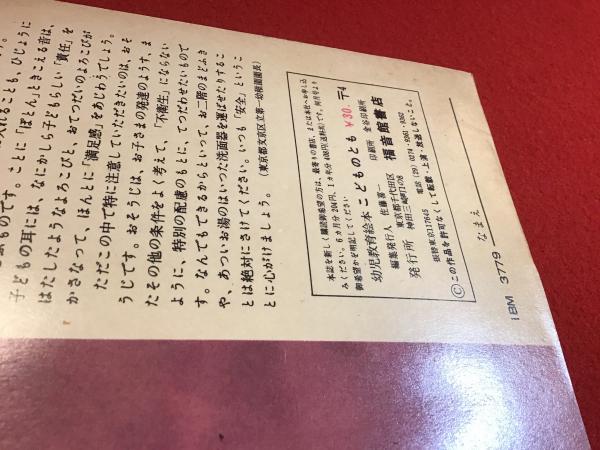 に入れることも、ひじょうに
ものです。ことに「ぽとん」ときこえる音は、
子どもの耳には、なにかしら子どもらしい「責任」を
はたしたようなよろこびと、おてつだいのよろこびが
かさなって、ほんとに「満足感」をあじわうでしょう。
ただこの中で特に注意していただきたいのは、おそ
うじです。おそうじは、お子さまの発達のようす、ま
たその他の条件をよく考えて、「不衛生」にならない
ように、特別の配慮のもとに、てつだわせたいもので
す。なんでもできるからといって、お二階のまどふき
や、あついお湯のはいった洗面器を運ばせたりするこ
とは絶対にさけてください。いつも「安全」というこ
とに心がけましょう。
（東京都文京区立第一幼稚園園長）
本誌を新しく購読御希望の方は、最寄りの書店、または本社へお申し込
みください。6ヵ月分 204円、1ヵ年分 408円(送料共)です。何月号より
御希望かを明記してください
幼児教育絵本 こどものとも ¥30.
編集発行人 佐藤喜一 印刷所 金谷印刷所
発行所 東京都千代田区
神田三崎町1の8 福音館書店
振替東京117645 電話 (29) 0274・9061・9362
Ⓒこの作品を許可なくして転載・上演・放送しないこと。
なまえ
IBM 3779